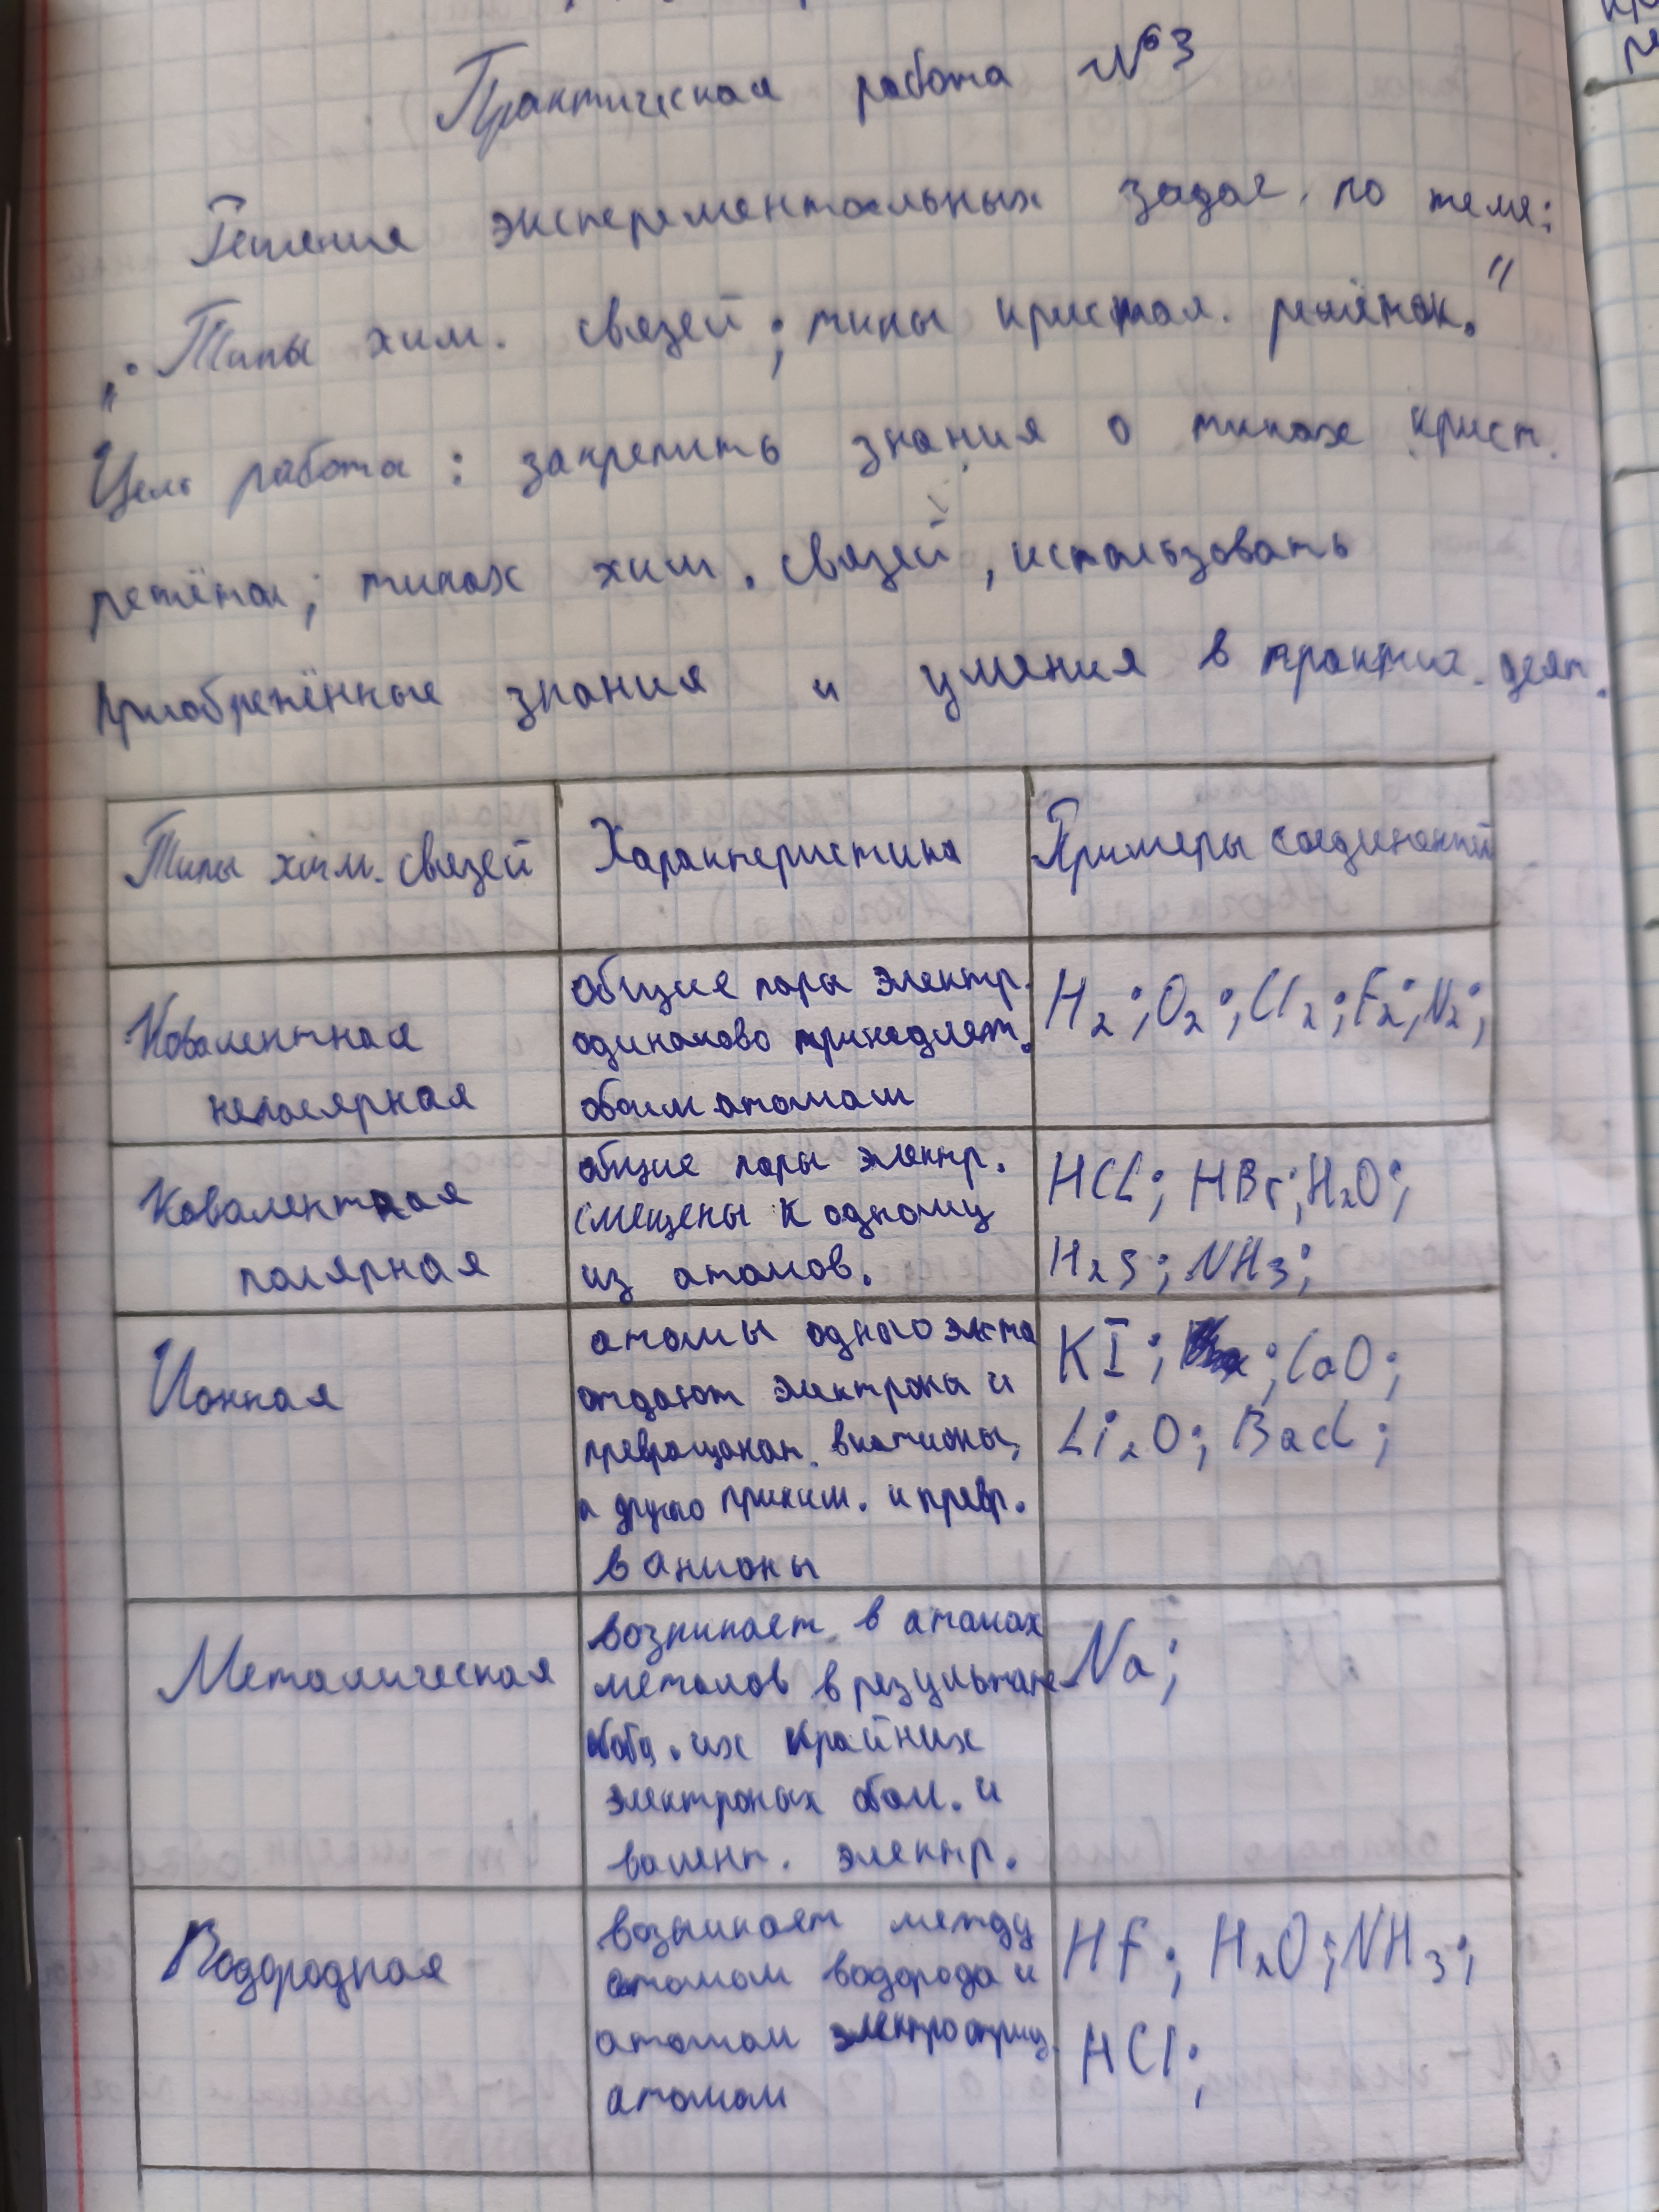 Практическая работа №3
Решение эксперементальных задач по теме:
„Типы хим. связей; типы кристал. решёток."
Цель работа: закрепить знания о типах крист.
решёток; типах хим. связей, использовать
приобретённые знания и умения в практич. деят.
Типы хим. связей
Характеристика
Примеры соединений
Ковалентная
неполярная
общие пары электр.
одинаково принадлеж.
обоим атомам
H₂; O₂; Cl₂; F₂; N₂;
Ковалентная
полярная
общие пары электр.
смещены к одному
из атомов.
HCl; HBr; H₂O;
H₂S; NH₃;
Ионная
атомы одного эл-та
отдают электроны и
превращают. в катионы,
а другого приним. и превр.
в анионы
KI; ; CaO;
Li₂O; BaCl;
Металическая
возникает в атомах
металов в результате
их крайних
электроных обол. и
валент. электр.
Na;
Водородная
возникает между
атомом водорода и
атомом электроотриц.
атомом
HF; H₂O; NH₃;
HCl;